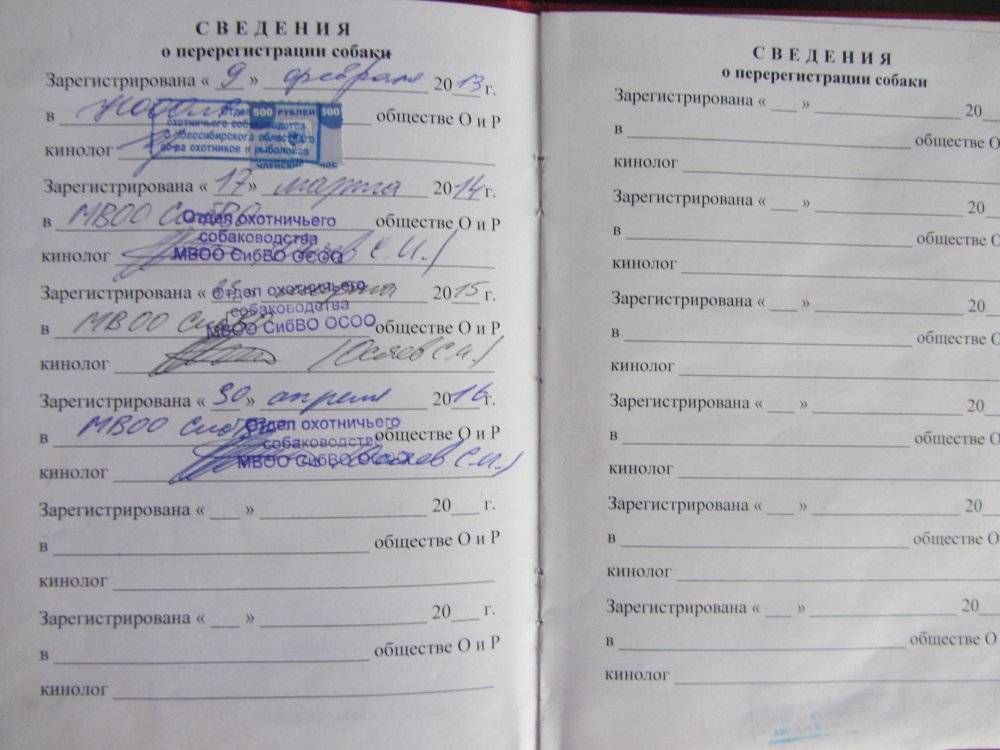 СВЕДЕНИЯ
о перерегистрации собаки
Зарегистрирована « 9 » февраля 2013 г.
в обществе О и Р
Отдел 500 РУБЛЕЙ 500
охотничьего собаководства
Новосибирского областного
об-ра охотников и рыболовов
ЧЛЕНСКИЙ ВЗНОС
кинолог
Зарегистрирована « 17 » марта 2014 г.
в МВОО СибВО обществе О и Р
Отдел охотничьего
собаководства
МВОО СибВО ОСОО
кинолог С.И.)
Зарегистрирована « » марта 2015 г.
Отдел охотничьего
собаководства
в МВОО СибВО обществе О и Р
МВОО СибВО ОСОО
кинолог С.И.)
Зарегистрирована « 30 » апреля 2016 г.
в МВОО СибВО обществе О и Р
Отдел охотничьего
собаководства
МВОО СибВО ОСОО
кинолог С.И.)
Зарегистрирована « ___ » ___ 20___ г.
в ___ обществе О и Р
кинолог ___
Зарегистрирована « ___ » ___ 20___ г.
в ___ обществе О и Р
кинолог ___
СВЕДЕНИЯ
о перерегистрации собаки
Зарегистрирована « ___ » ___ 20
в ___ обществе О
кинолог ___
Зарегистрирована « ___ » ___ 20
в ___ обществе О
кинолог ___
Зарегистрирована « ___ » ___ 20
в ___ обществе О
кинолог ___
Зарегистрирована « ___ » ___ 20
в ___ обществе О
кинолог ___
Зарегистрирована « ___ » ___ 20
в ___ обществе О
кинолог ___
Зарегистрирована « ___ » ___ 20
в ___ обществе О
кинолог ___